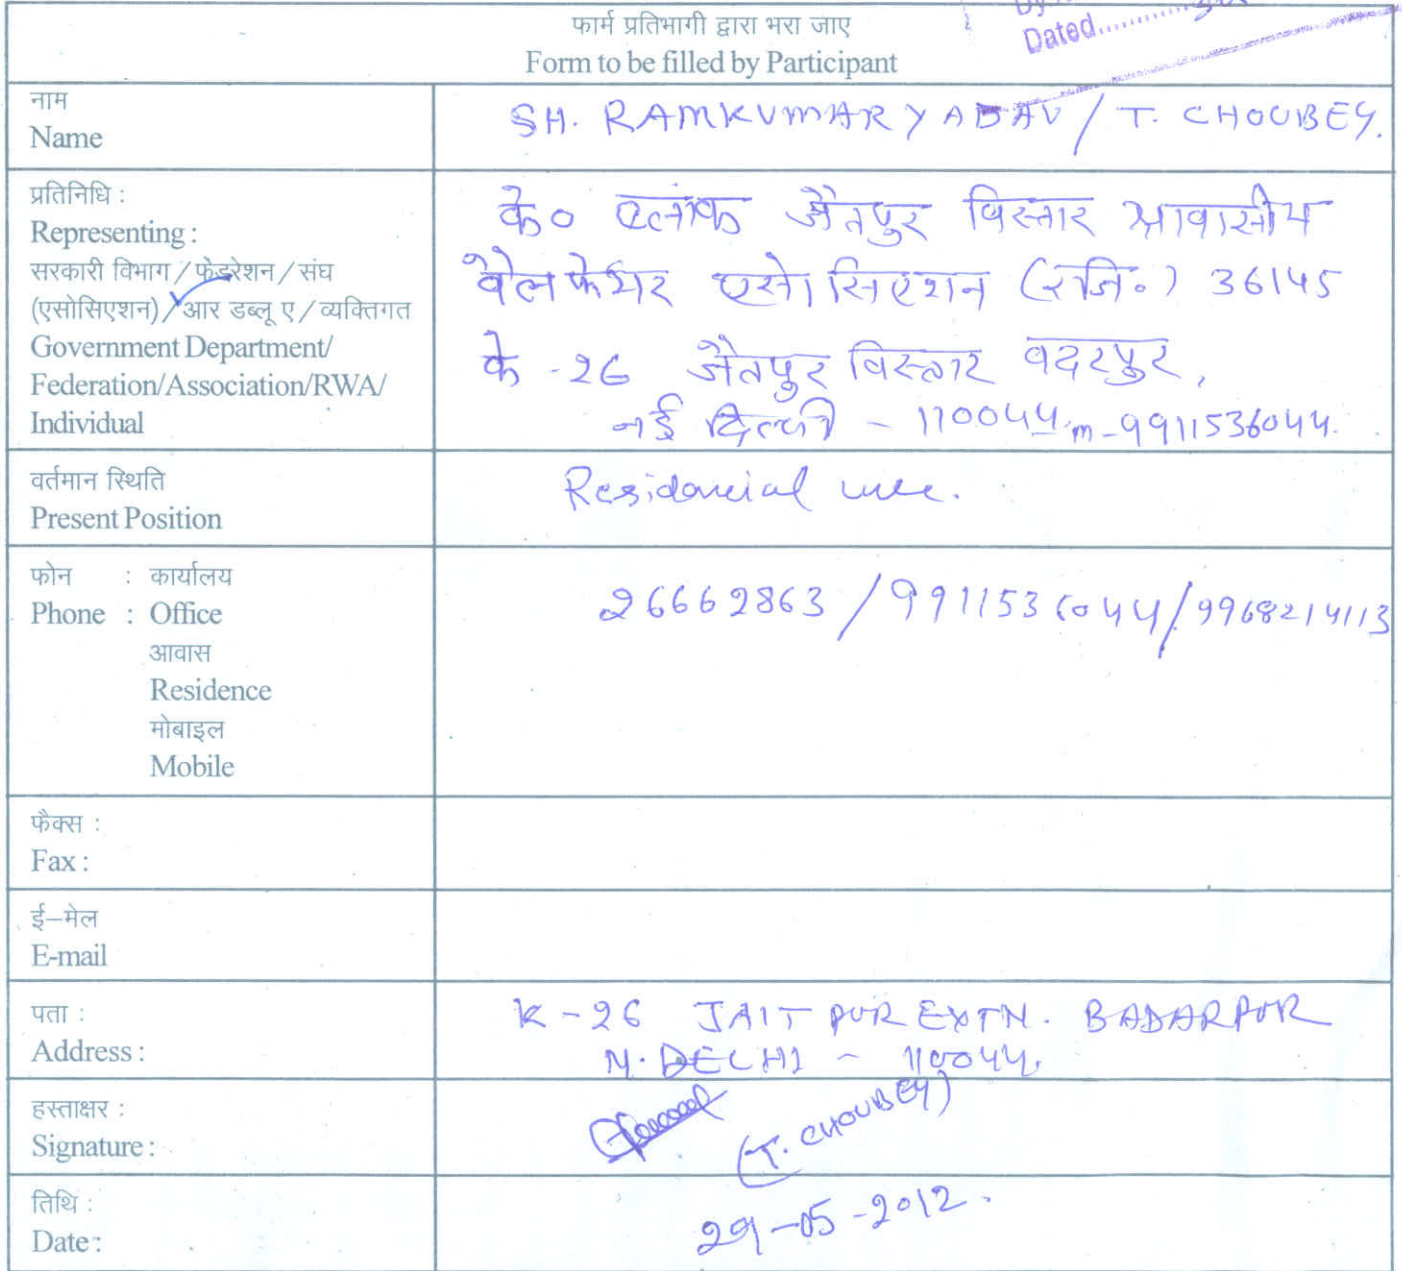 Dated............
फार्म प्रतिभागी द्वारा भरा जाए
Form to be filled by Participant
नाम
Name
SH. RAMKUMAR YADAV / T. CHOUBEY.
प्रतिनिधि :
Representing :
सरकारी विभाग / फेडरेशन / संघ
(एसोसिएशन) / आर डब्लू ए / व्यक्तिगत
Government Department/
Federation/Association/RWA/
Individual
के० ब्लाक जैतपुर विस्तार आवासीय
वेलफेयर एसोसिएशन (रजि०) 36145
के -26 जैतपुर विस्तार बदरपुर,
नई दिल्ली - 110044, m-9911536044.
वर्तमान स्थिति
Present Position
Residancial use.
फोन : कार्यालय
Phone : Office
आवास
Residence
मोबाइल
Mobile
26662863 / 9911536044 / 9968214113
फैक्स :
Fax :
ई–मेल
E-mail
पता :
Address :
K-26 JAITPUR EXTN. BADARPUR
N. DELHI - 110044.
हस्ताक्षर :
Signature :
(T. CHOUBEY)
तिथि :
Date :
29-05-2012.